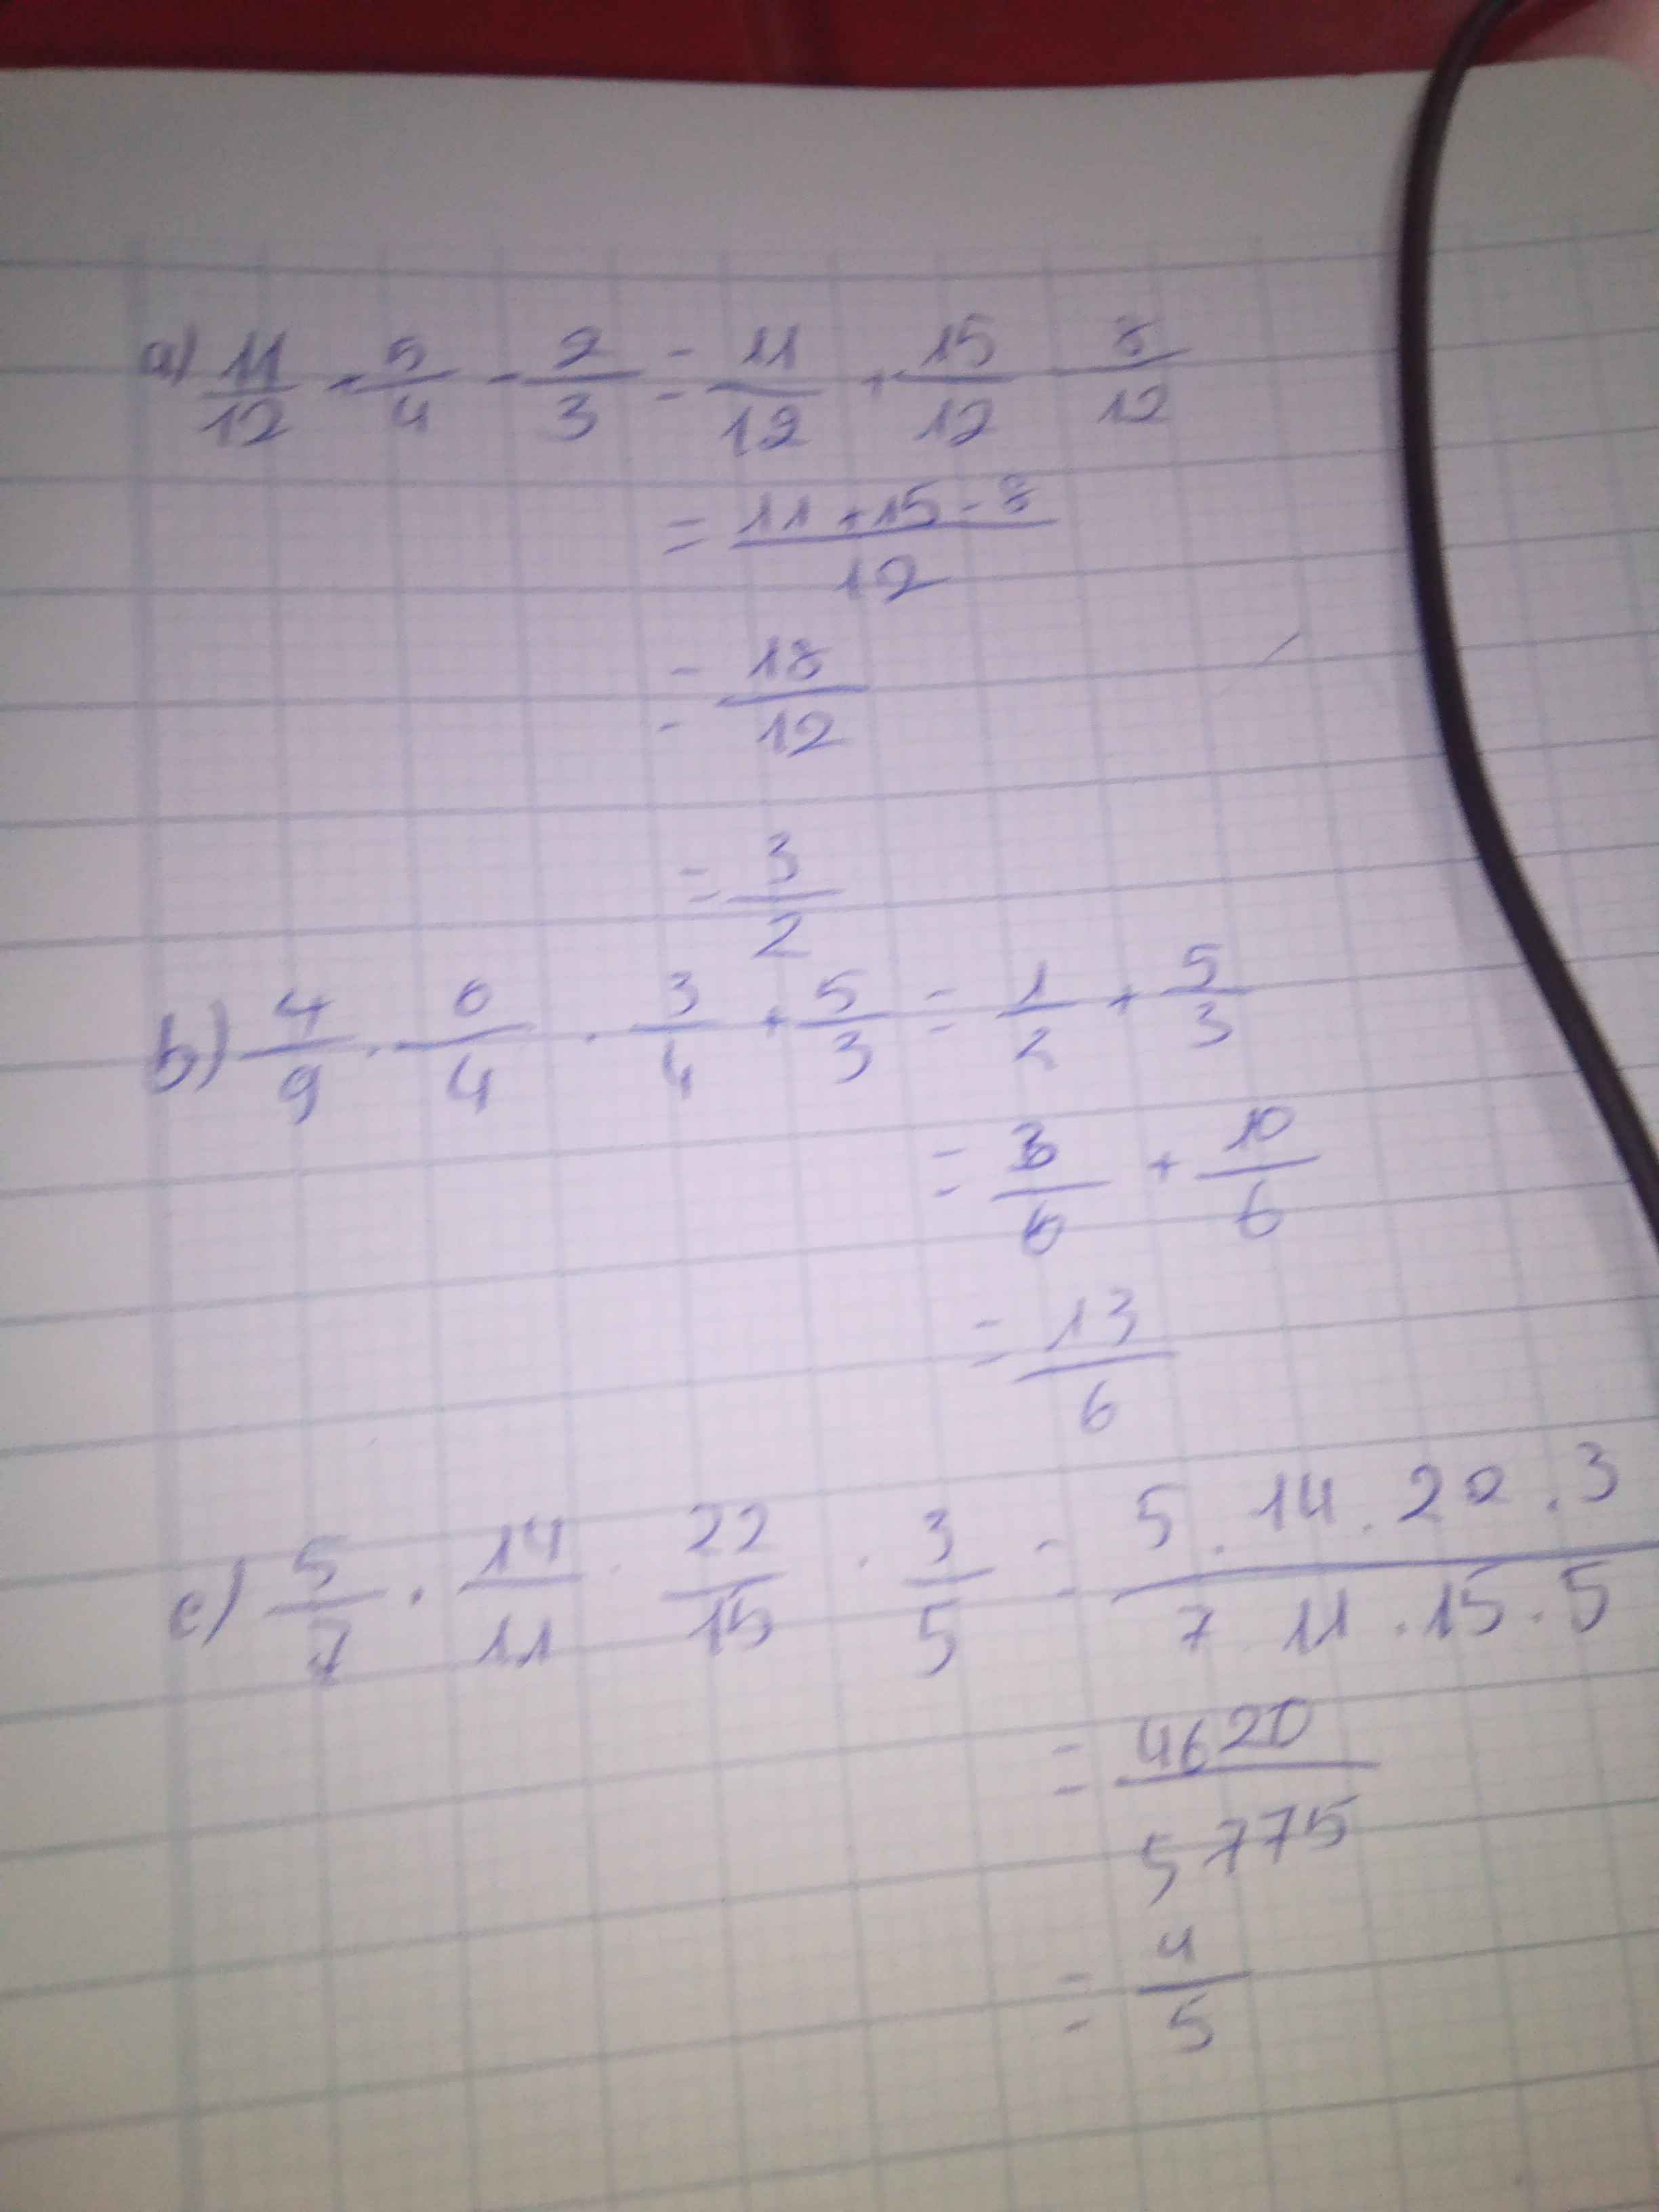 a) 11/12 + 5/4 - 2/3 = 11/12 + 15/12 - 8/12
= 11 + 15 - 8 / 12
= 18/12
= 3/2
b) 4/9 . 6/4 . 3/4 + 5/3 = 1/2 + 5/3
= 3/6 + 10/6
= 13/6
c) 5/7 . 14/11 . 22/15 . 3/5 = 5 . 14 . 20 . 3 / 7 . 11 . 15 . 5
= 4620/5775
= 4/5